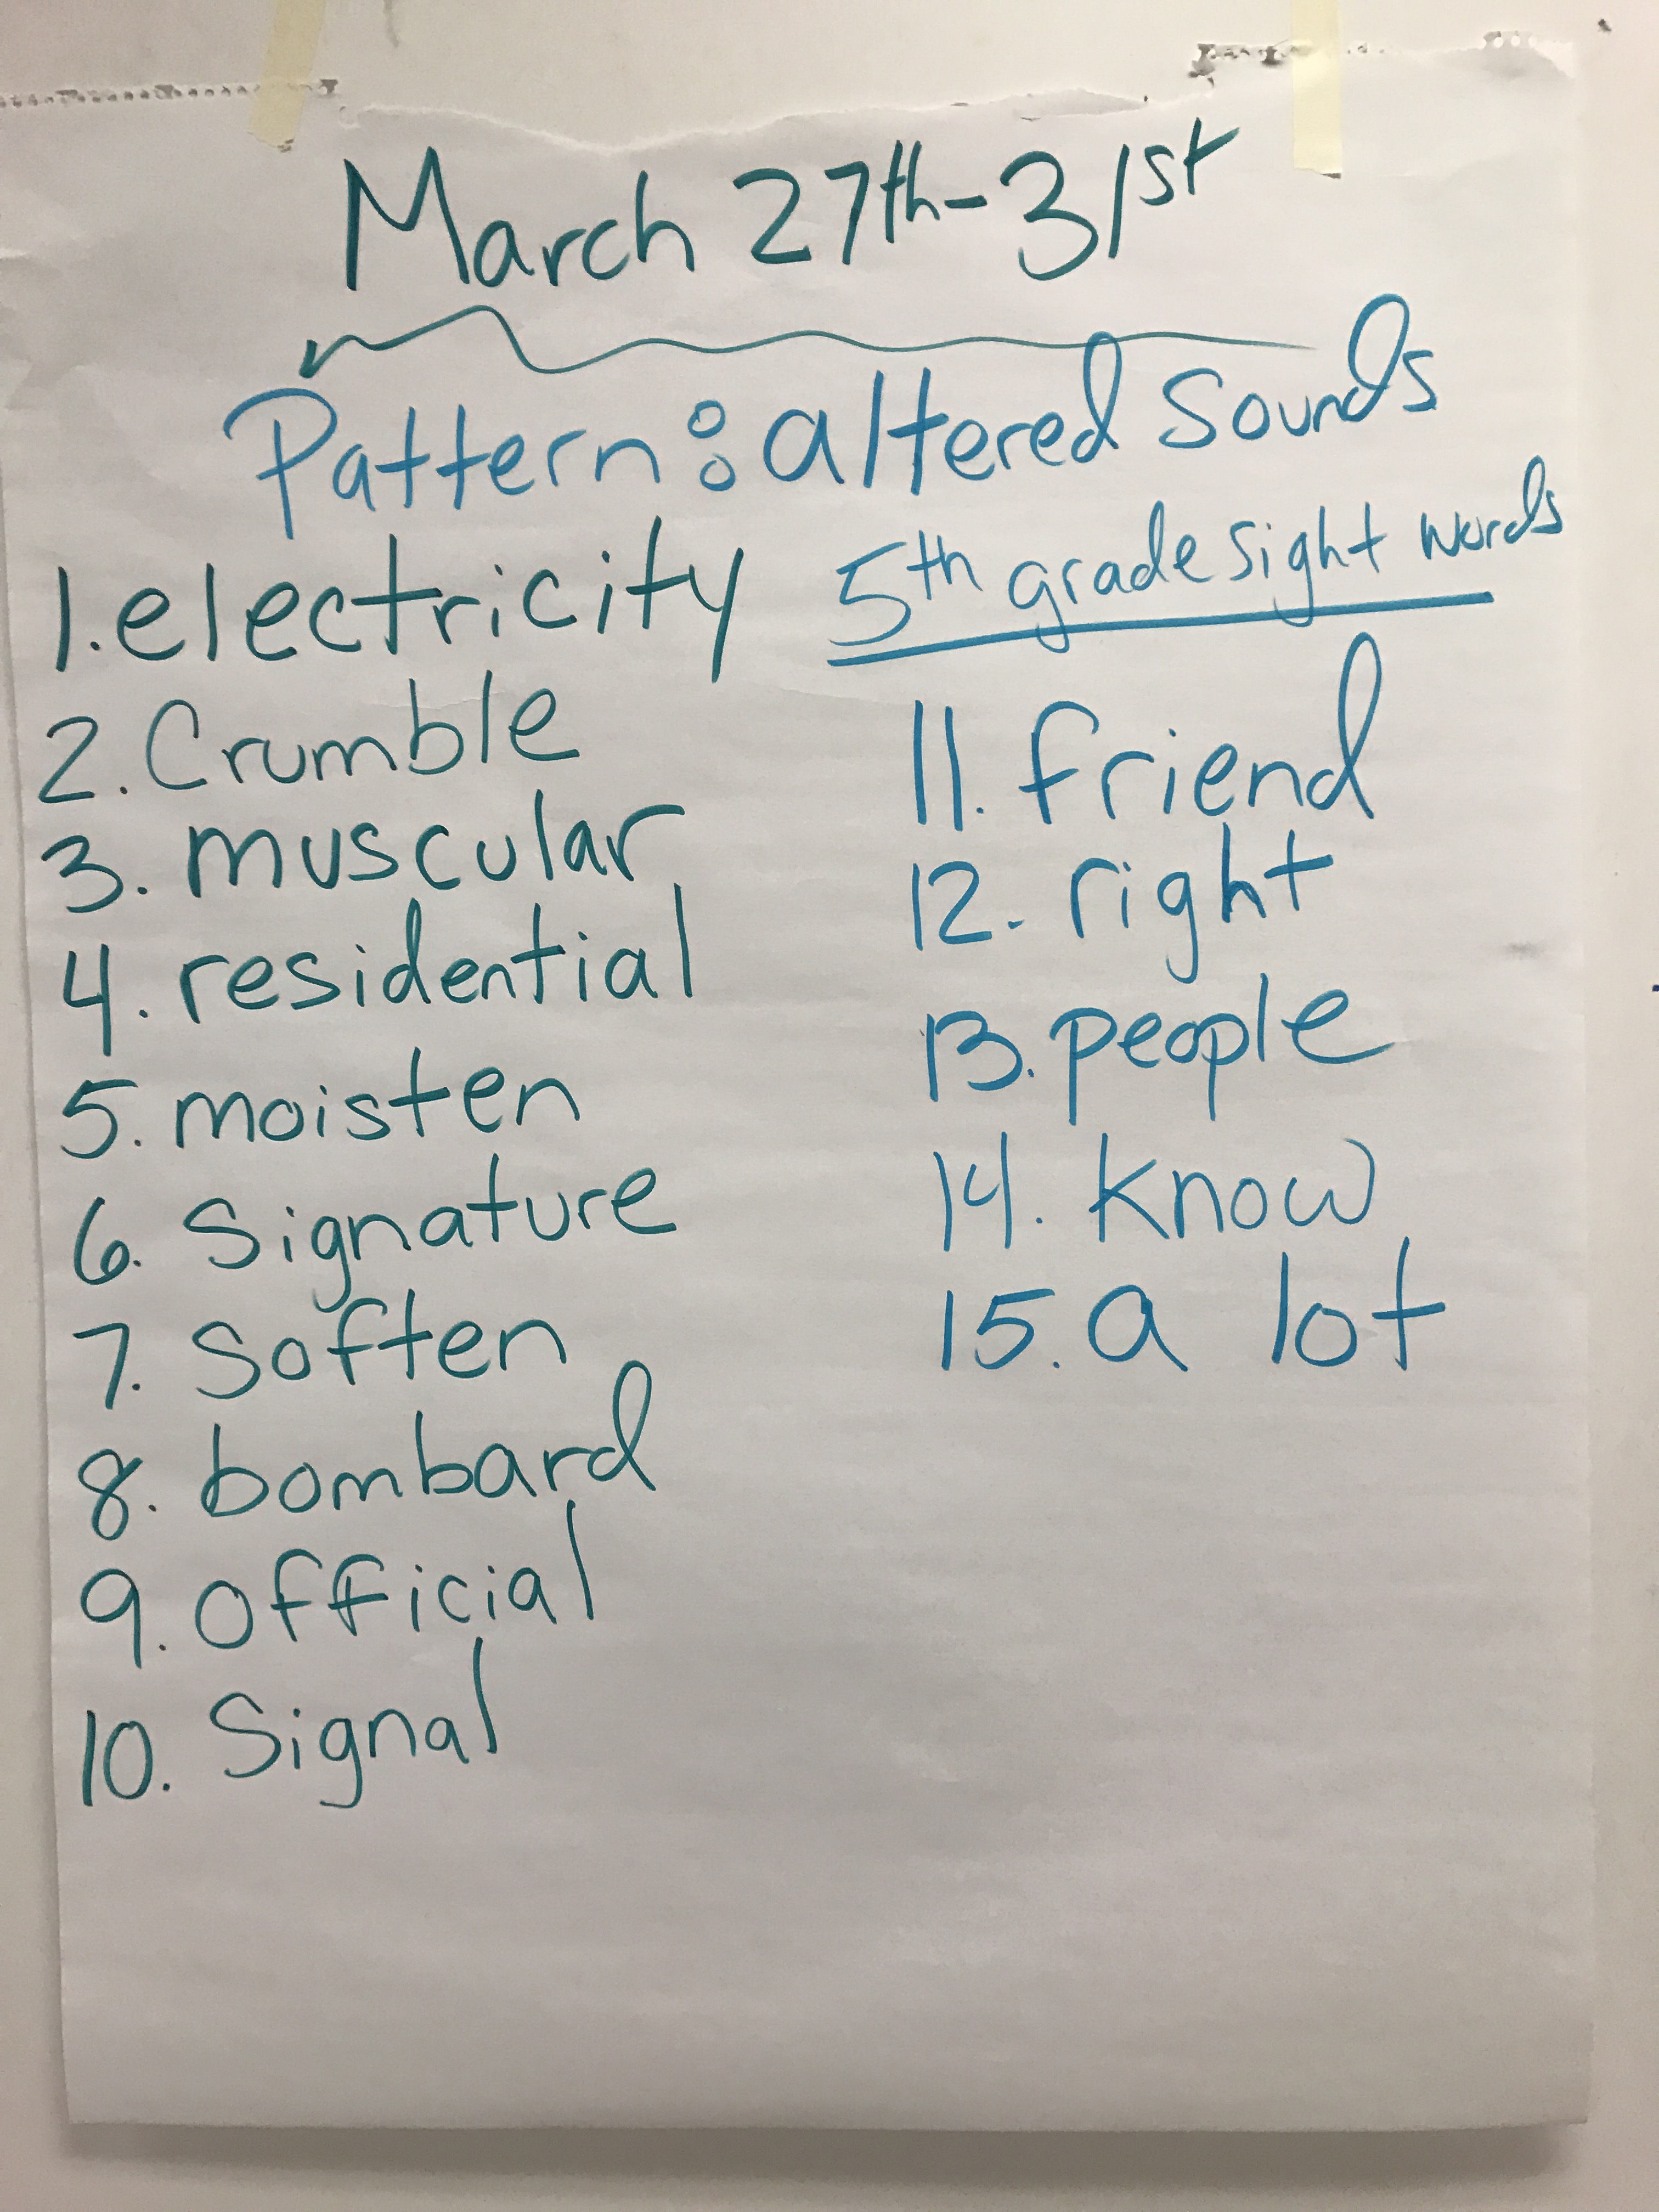 March 27th-31st
Pattern: altered sounds
1. electricity
2. Crumble
3. muscular
4. residential
5. moisten
6. Signature
7. Soften
8. bombard
9. official
10. Signal
5th grade sight words
11. friend
12. right
13. people
14. know
15. a lot